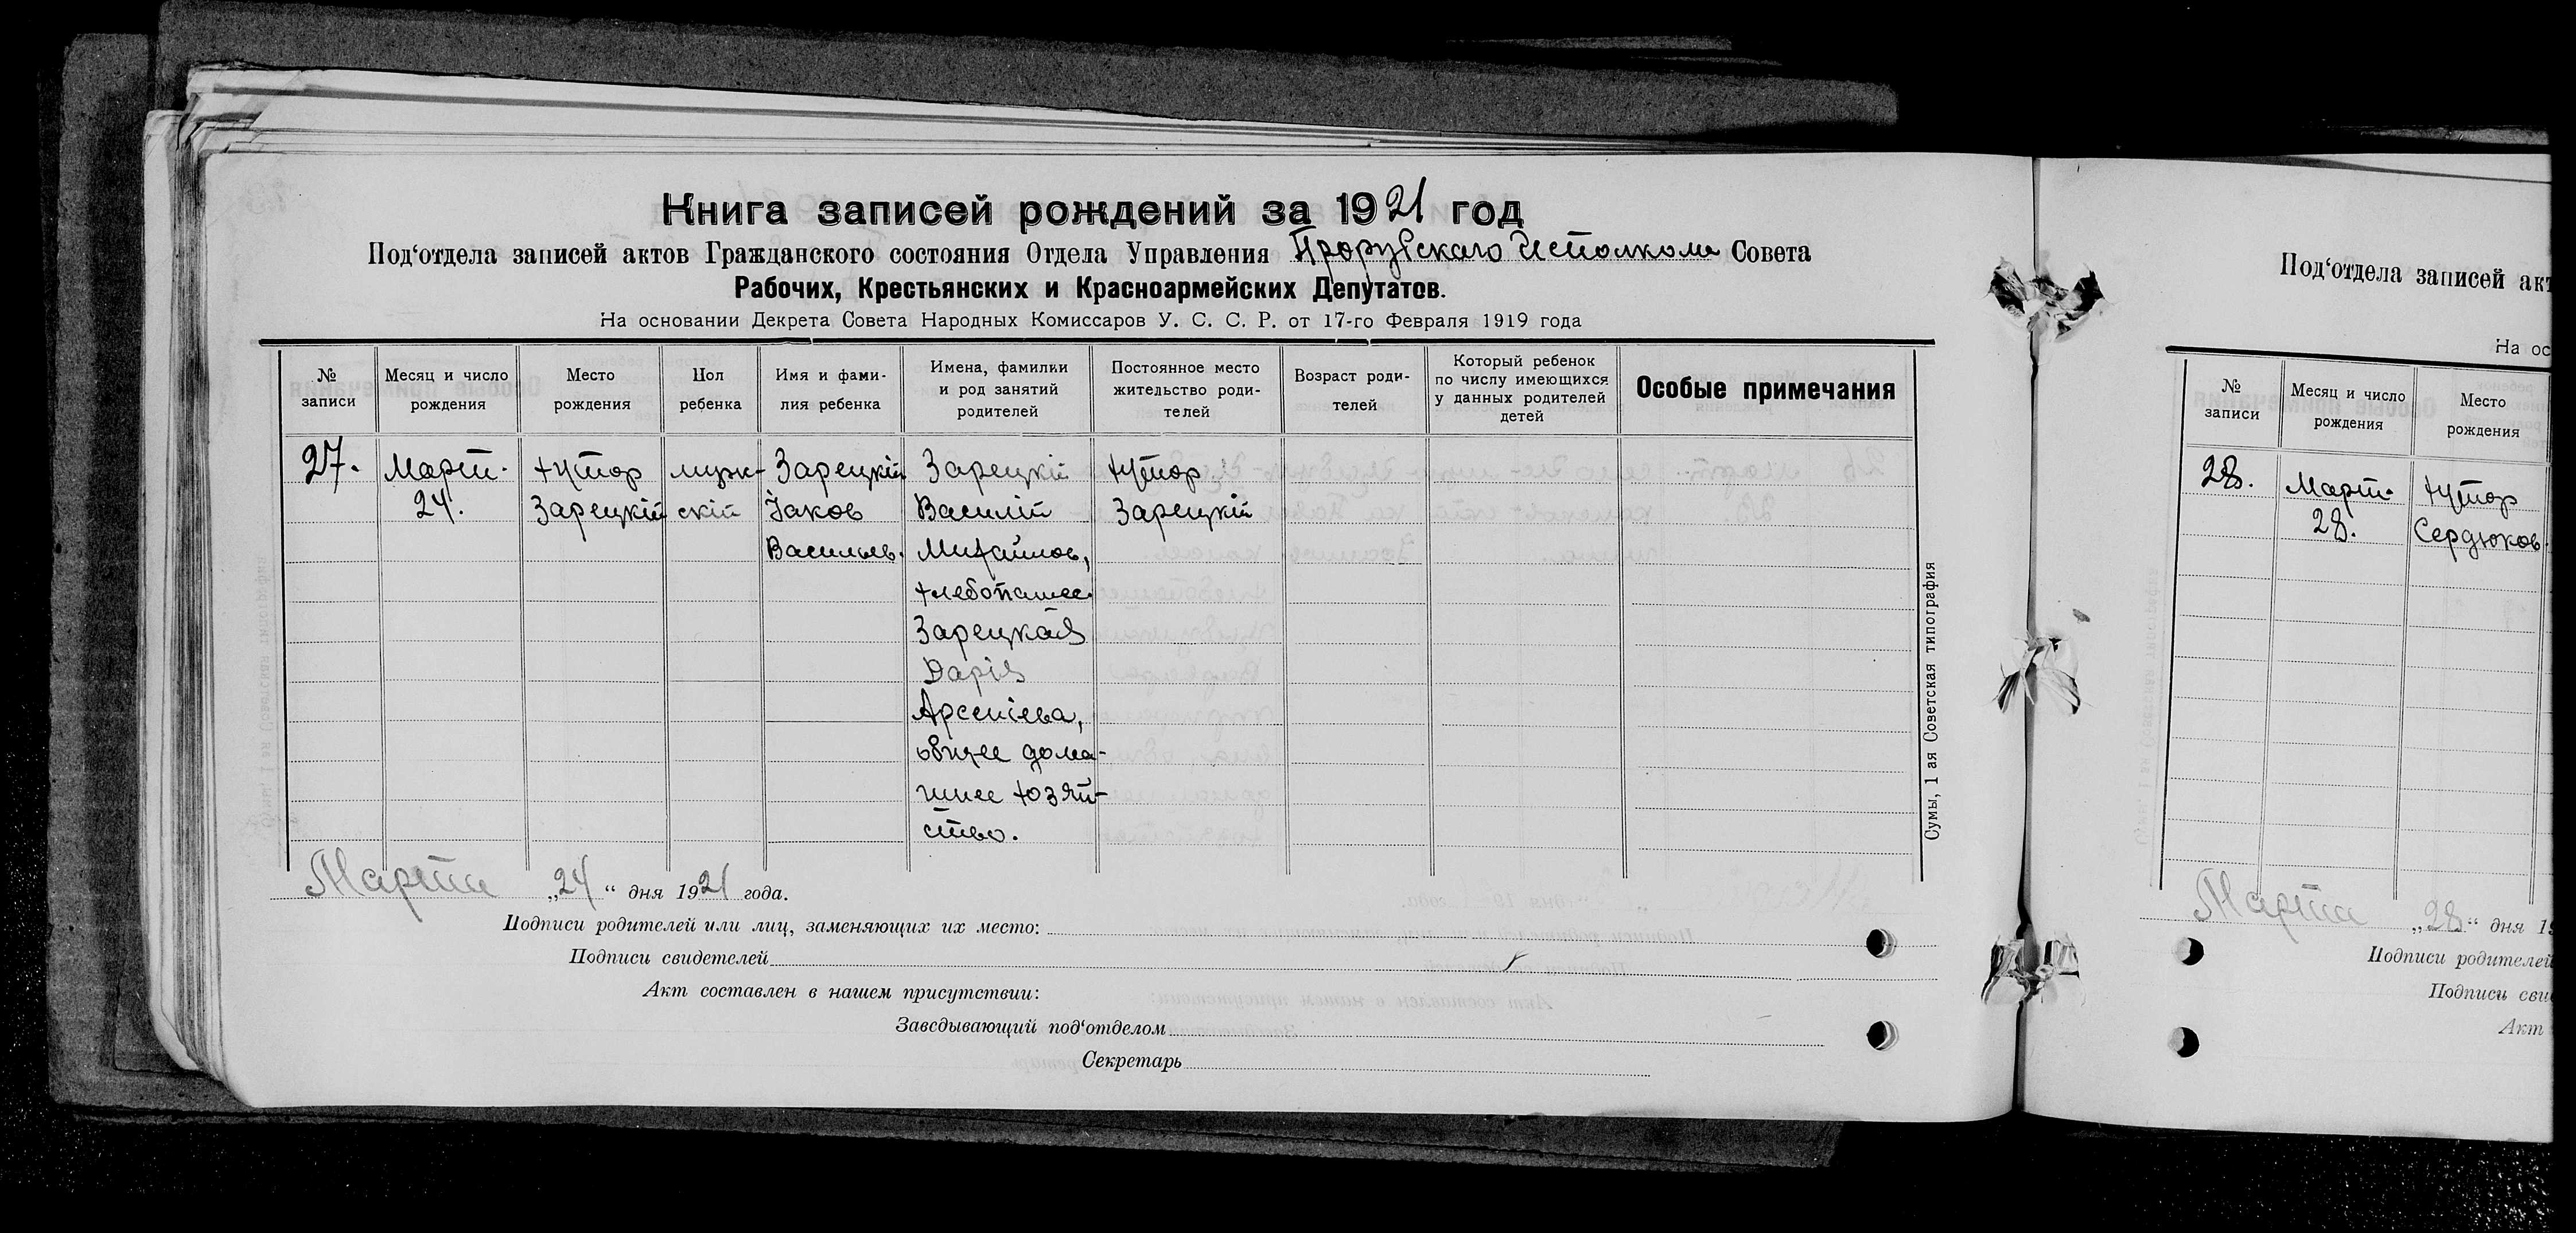 Книга записей рождений за 1921 год
Под‘отдела записей актов Гражданского состояния Отдела Управления Прорубскаго Исполкома Совета
Рабочих, Крестьянских и Красноармейских Депутатов.
На основании Декрета Совета Народных Комиссаров У. С. С. Р. от 17-го Февраля 1919 года
№ записи
Месяц и число рождения
Место рождения
Пол ребенка
Имя и фами-
лия ребенка
Имена, фамилии
и род занятий
родителей
Постоянное место
жительство роди-
телей
Возраст роди-
телей
Который ребенок
по числу имеющихся
у данных родителей
детей
Особые примечания
27.
Март.
24.
хутор
Зарецкій
муж-
скій
Зарецкій
Іаков
Васильев.
Зарецкій
Василій
Михайлов,
хлебопашец.
Зарецкая
Дарія
Арсеніева,
общее дома-
шнее хозяй-
ство.
хутор
Зарецкій
Сумы, 1 ая Советская типография
Марта „24“ дня 1921 года.
Подписи родителей или лиц, заменяющих их место:
Подписи свидетелей
Акт составлен в нашем присутствии:
Заведывающий под‘отделом
Секретарь
Под‘отдела записей акт
На ос
№
записи
Месяц и число
рождения
Место
рождения
28.
Март.
28.
хутор
Сердюков.
Марта „28“ дня 19
Подписи родителей
Подписи сви
Акт